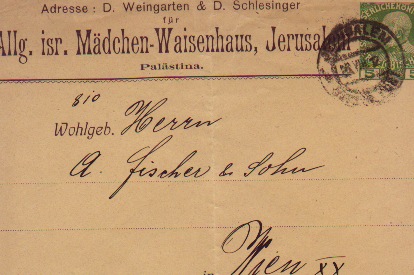 Adresse : D. Weingarten & D. Schlesinger
für
Allg. isr. Mädchen-Waisenhaus, Jerusalem
Palästina.
Wohlgeb. Herrn
A. Fischer & Sohn
in Wien XX